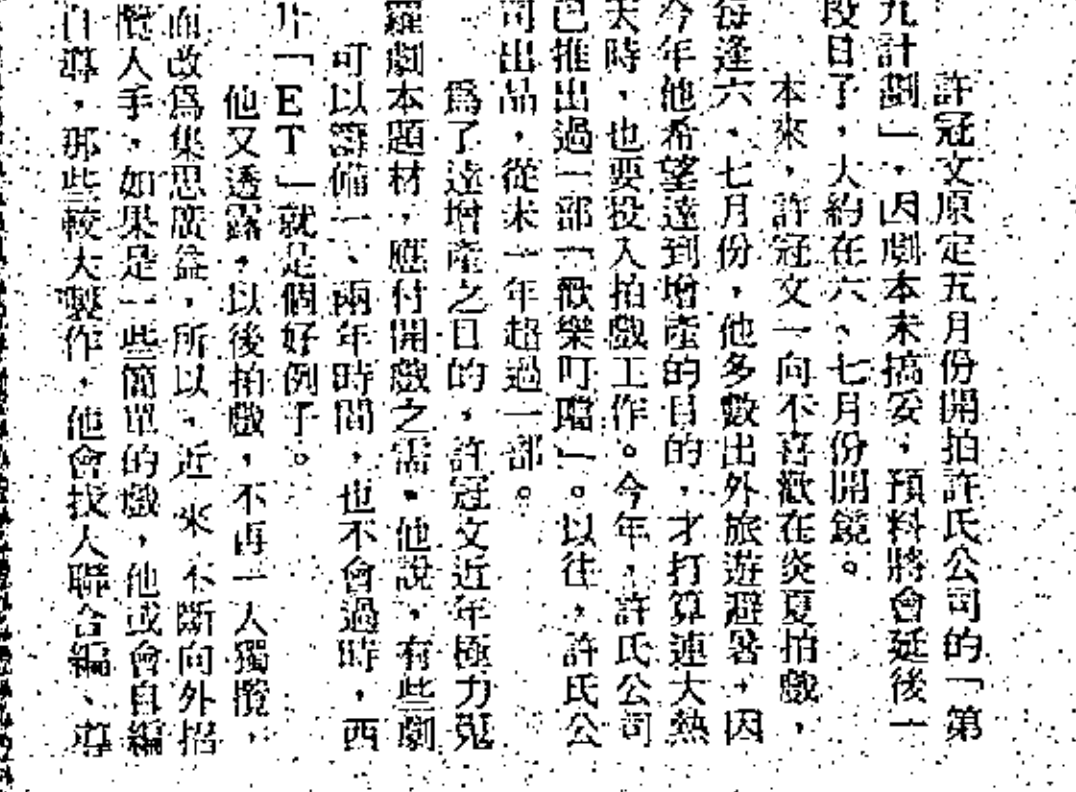 許冠文原定五月份開拍許氏公司的「第
九計劃」，因劇本未搞妥，預料將會延後一
段日子，大約在六、七月份開鏡。
本來，許冠文一向不喜歡在炎夏拍戲，
每逢六、七月份，他多數出外旅遊避暑，因
今年他希望達到增產的目的，才打算連大熱
天時，也要投入拍戲工作。今年，許氏公司
已推出過一部「歡樂叮噹」。以往，許氏公
司出品，從未一年超過一部。
爲了達增產之目的，許冠文近年極力蒐
羅劇本題材，應付開戲之需。他說，有些劇
可以籌備一、兩年時間，也不會過時，西
片「ET」就是個好例子。
他又透露，以後拍戲，不再一人獨攬，
而改爲集思廣益，所以，近來不斷向外招
攬人手，如果是一些簡單的戲，他或會自編
自導，那些較大製作，他會找人聯合編、導